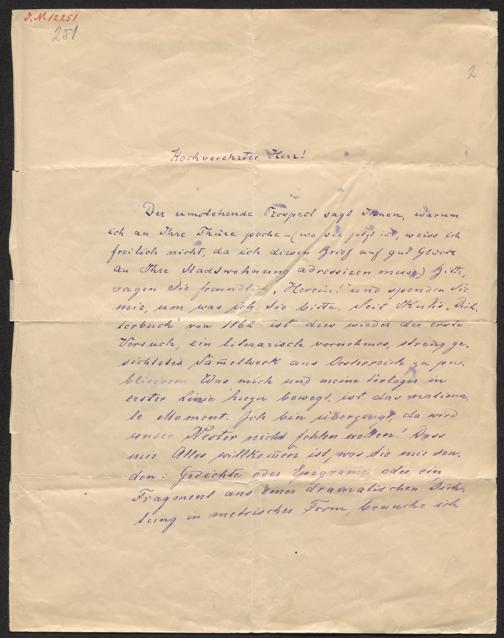 J.N.12251
251
2
Hochverehrter Herr!
Der umstehende Prospect sagt Ihnen, warum
ich an Ihre Thüre poche – (wo sie jetzt ist, weiss ich
freilich nicht, da ich diesen Brief auf gut Glück
an Ihre Stadtwohnung adressiren muss) Bitte,
sagen Sie freundlich „Herein!" und spenden Sie
mir, um was ich Sie bitte. Seit Kuh's „Dich-
terbuch" von 1862 ist dies wieder der erste
Versuch, ein literarisch vornehmes, streng ge-
sichtetes Sam̅elwerk aus Oesterreich zu pu-
bliciren. Was mich und meine Verleger in
erster Linie hiezu bewegt, ist das nationa-
le Moment. Ich bin überzeugt, da wird
unser Nestor nicht fehlen wollen! Dass
mir Alles willkom̅en ist, was Sie mir sen-
den: Gedichte oder Epigram̅e oder ein
Fragment aus einer dramatischen Dich-
tung in metrischer Form, brauche ich